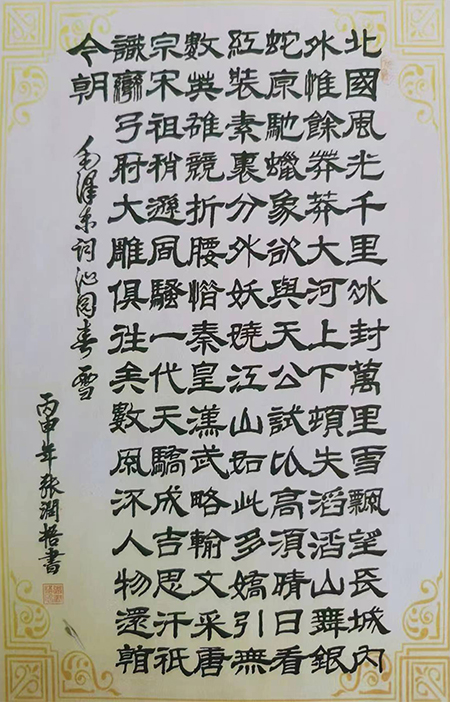 北國風光千里冰封萬里雪飄望長城内
外惟餘莽莽大河上下頓失滔滔山舞銀
蛇原馳蠟象欲與天公試比高須晴日看
紅裝素裹分外妖嬈江山如此多嬌引無
數英雄競折腰惜秦皇漢武略輸文采唐
宗宋祖稍遜風騷一代天驕成吉思汗祇
識彎弓射大雕俱往矣數風流人物還看
今朝
毛澤東词沁园春雪
丙申年张潤書